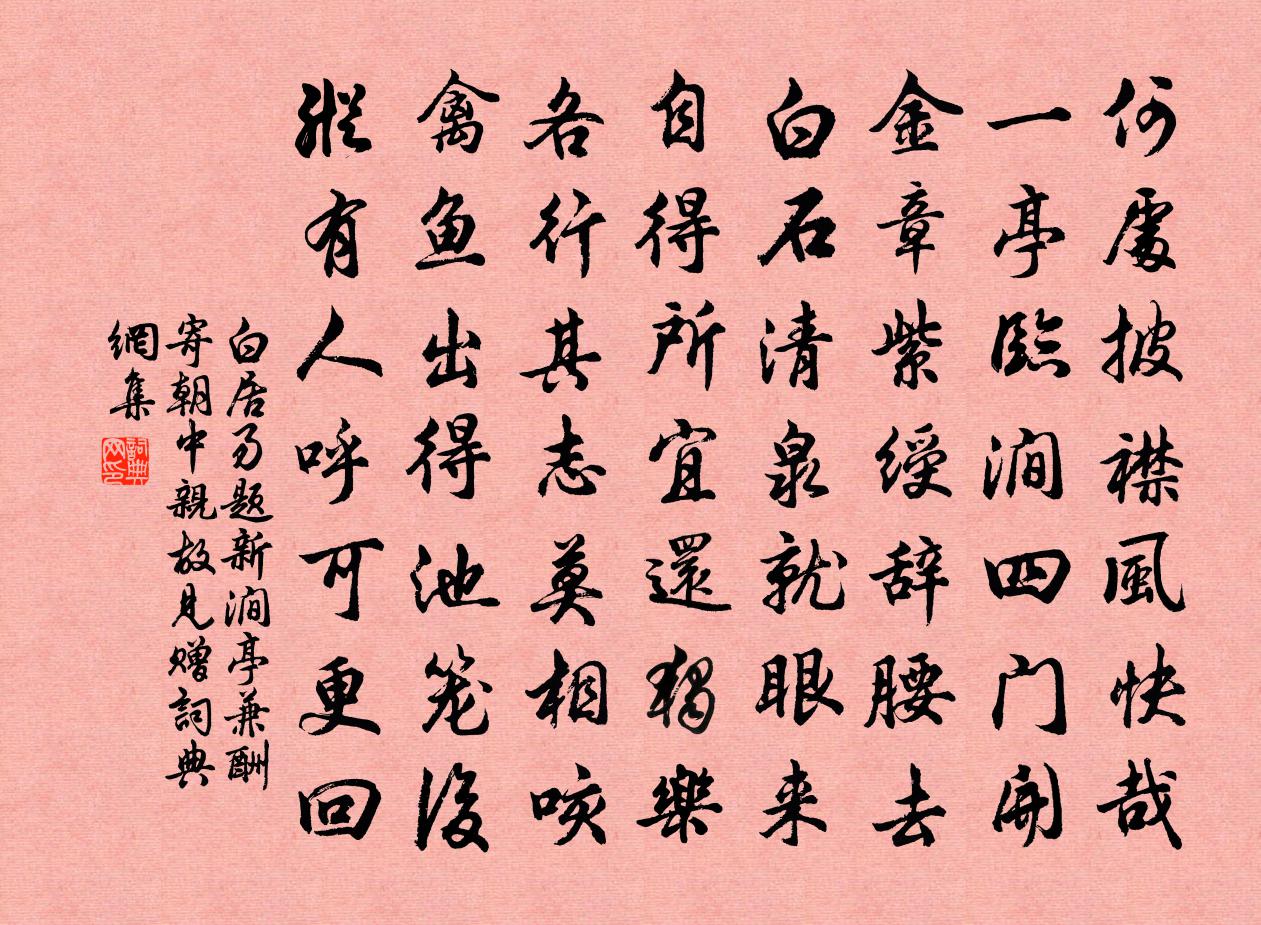 何處披襟風快哉
一亭臨澗四门開
金章紫綬辞腰去
白石清泉就眼来
自得所宜還獨樂
各行其志莫相咳
禽鱼出得池笼後
縱有人呼可更回
白居易题新澗亭兼酬
寄朝中親故見赠詞典
網集
詞典网印